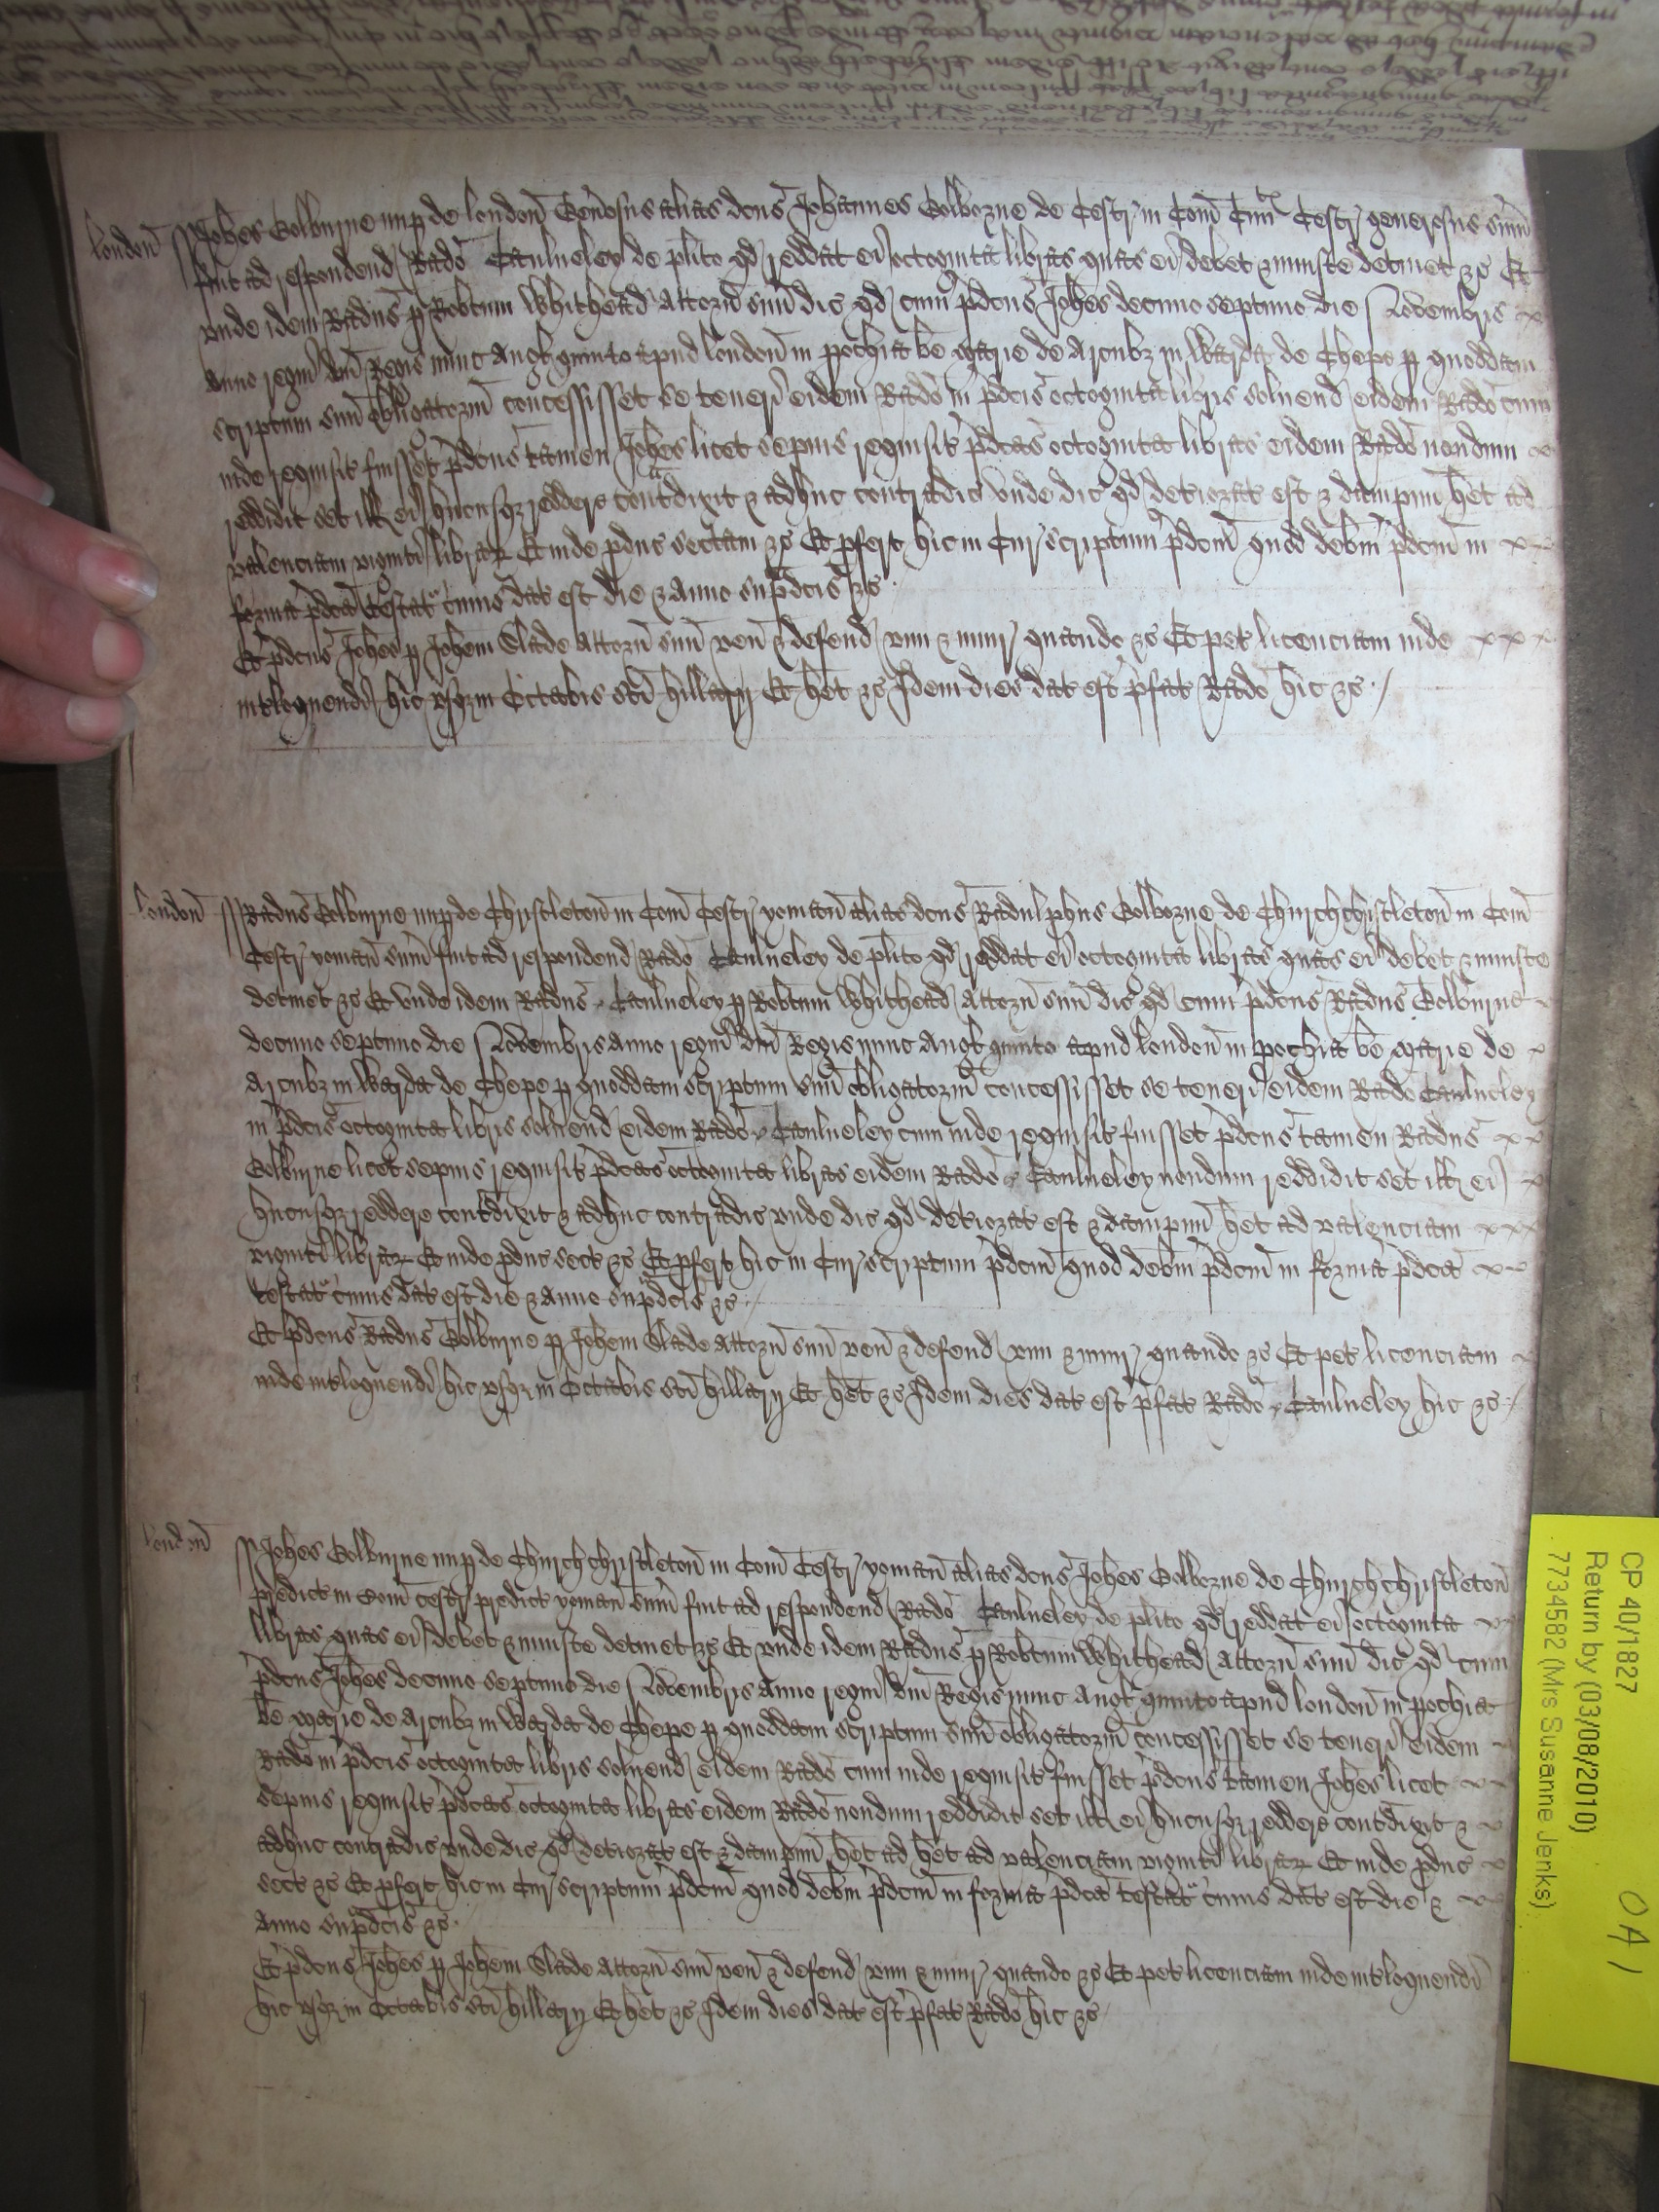 london Johes Golburne nup de london Generosus alias dcus Johannes Golborne de Cestr in Com Civit Cestr generosus sum
fuit ad respondend Rado Caulueley de plito qd reddat ei octoginta libras quas ei debet & iniuste detinet &c Et
unde idem Radus p Robtum Whithead Attorn suu dic qd cum pdcus Johes decimo septimo die Novembris
anno regni dni Regis nunc Angl quinto apud london in pochia be Marie de Arcubz in Warda de Chepe p quoddam
scriptum suu obligatorium concessisset se teneri eidem Rado in pdcis octoginta libris solvend eidem Rado cum
inde requisit fuisset pdcus tamen Johes licet sepius requisit pdcas octoginta libras eidem Rado nondum
reddidit set ill ei hucusqz reddere contdixit & adhuc contradic unde dic qd deteriorat est & dampnu het ad
valenciam viginti librar Et inde pduc sectam &c Et pfert hic in Cur scriptum pdcm quod debm pdcm in
forma pdca testat cuius dat est die & anno supdcis &c
Et pdcus Johes p Johem Slade Attorn suu ven & defend vim & iniur quando &c Et pet licenciam inde
intloquendi hic usqz in Octabis sci hillarij Et het &c Idem dies dat est pfat Rado hic &c
london Radus Golburne nup de Christleton in Com Cestr yoman alias dcus Radulphus Golborne de Churchchristleton in Com
Cestr yoman sum fuit ad respondend Rado Caulueley de plito qd reddat ei octoginta libras quas ei debet & iniuste
detinet &c Et unde idem Radus Caulueley p Robtum Whithead Attorn suu dic qd cum pdcus Radus Golburne
decimo septimo die Novembris anno regni dni Regis nunc Angl quinto apud london in pochia be Marie de
Arcubz in Warda de Chepe p quoddam scriptum suu obligatorium concessisset se teneri eidem Rado Caulueley
in pdcis octoginta libris solvend eidem Rado Caulueley cum inde requisit fuisset pdcus tamen Radus
Golburne licet sepius requisit pdcas octoginta libras eidem Rado Caulueley nondum reddidit set ill ei
hucusqz reddere contdixit & adhuc contradic unde dic qd deteriorat est & dampnu het ad valenciam
viginti librar Et inde pduc sect &c Et pfert hic in Cur scriptum pdcm quod debm pdcm in forma pdca
testat cuius dat est die & anno supdcis &c
Et pdcus Radus Golburne p Johem Slade Attorn suu ven & defend vim & iniur quando &c Et pet licenciam
inde intloquendi hic usqz in Octabis sci hillarij Et het &c Idem dies dat est pfat Rado Caulueley hic &c
london Johes Golburne nup de Churchchristleton in Com Cestr yoman alias dcus Johes Golborne de Churchchristleton
predict in Com Cestr predict yoman sum fuit ad respondend Rado Caulueley de plito qd reddat ei octoginta
libras quas ei debet & iniuste detinet &c Et unde idem Radus p Robtum Whithead Attorn suu dic qd cum
pdcus Johes decimo septimo die Novembris anno regni dni Regis nunc Angl quinto apud london in pochia
be Marie de Arcubz in Warda de Chepe p quoddam scriptum suu obligatorium concessisset se teneri eidem
Rado in pdcis octoginta libris solvend eidem Rado cum inde requisit fuisset pdcus tamen Johes licet
sepius requisit pdcas octoginta libras eidem Rado nondum reddidit set ill ei hucusqz reddere contdixit &
adhuc contradic unde dic qd deteriorat est & dampnu het ad het ad valenciam viginti librar Et inde pduc
sect &c Et pfert hic in Cur scriptum pdcm quod debm pdcm in forma pdca testat cuius dat est die &
anno supdcis &c
Et pdcus Johes p Johem Slade Attorn suu ven & defend vim & iniur quando &c Et pet licenciam inde intloquendi
hic usqz in Octabis sci hillarij Et het &c Idem dies dat est pfat Rado hic &c
CP 40/1827
Return by (03/08/2010)
7734582 (Mrs Susanne Jenks)